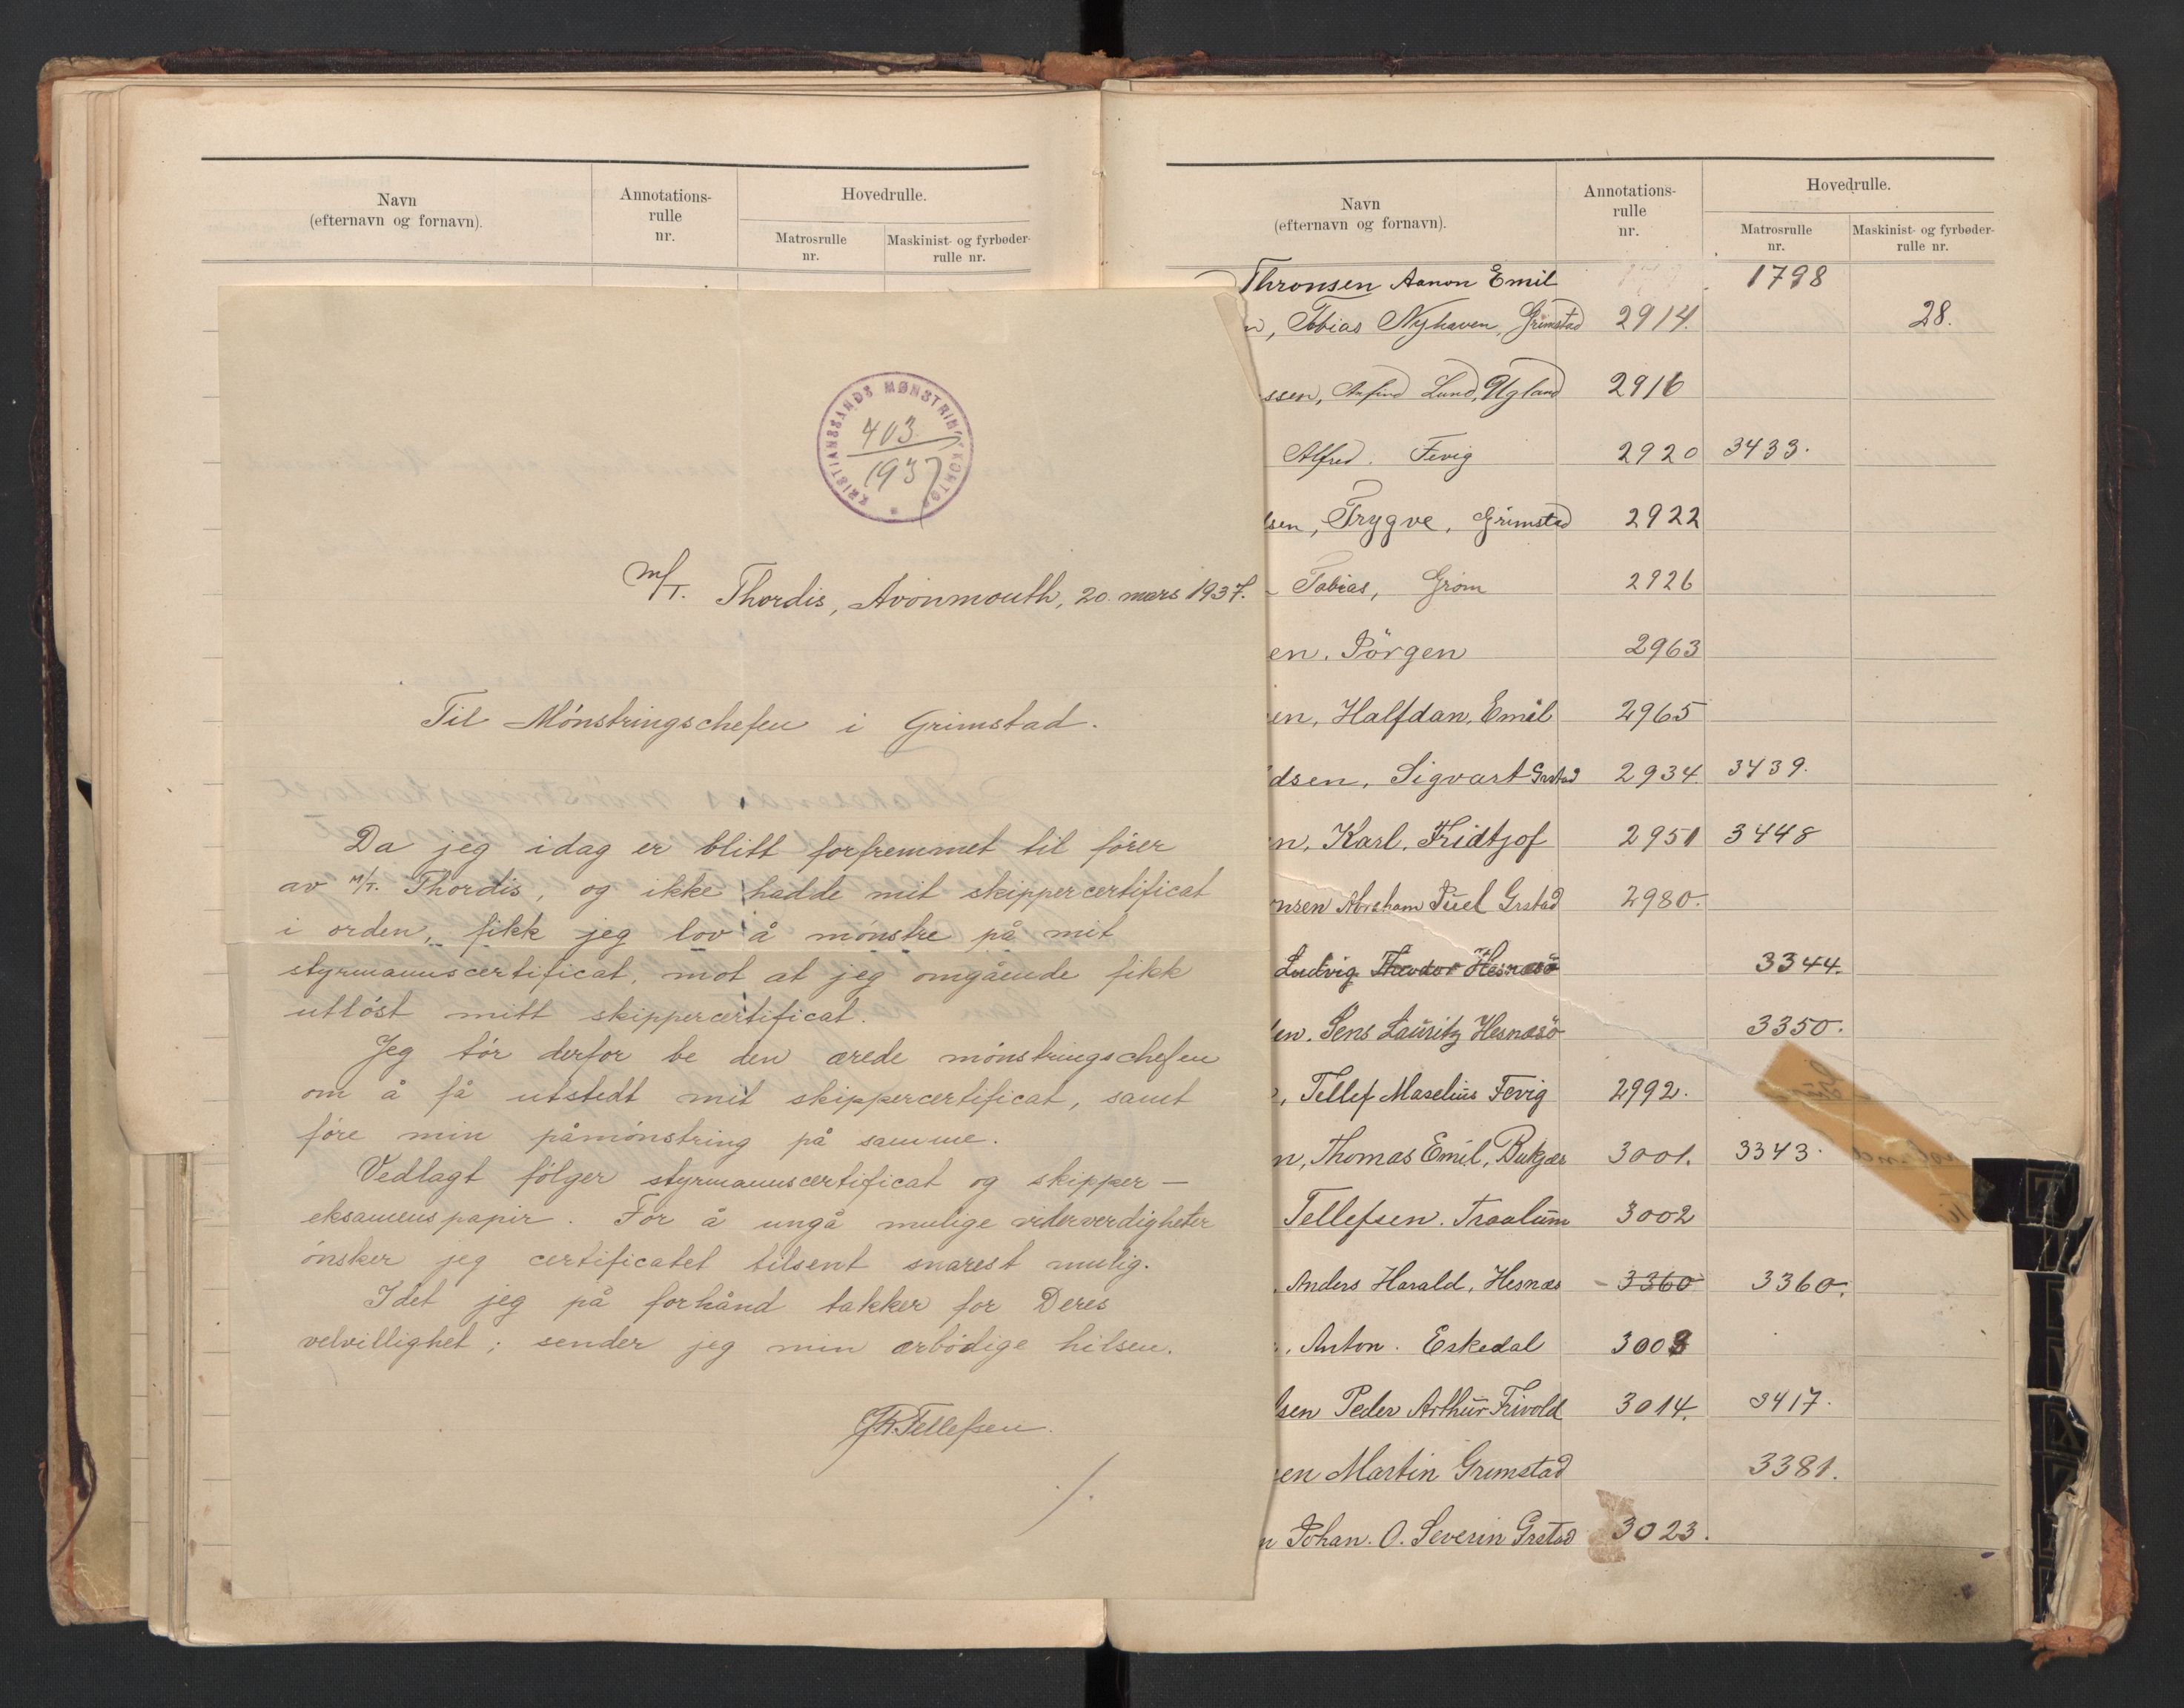 Navn
(efternavn og fornavn).
Annotations-
rulle
nr.
Hovedrulle.
Matrosrulle
nr.
Maskinist- og fyrbøder-
rulle nr.
KRISTIANSSANDS MØNSTRIN KONTOR
403
1937
M/T. Thordis, Avonmouth, 20. mars 1937.
Til Mönstringschefen i Grimstad.
Da jeg idag er blitt forfremmet til förer
av M/T. Thordis, og ikke hadde mit skippercertificat
i orden, fikk jeg lov å mönstre på mit
styrmannscertificat, mot at jeg omgående fikk
utlöst mitt skippercertificat.
Jeg tör derfor be den ærede mönstringschefen
om å få utstedt mit skippercertificat, samt
före min påmönstring på samme.
Vedlagt fölger styrmannscertificat og skipper-
eksamenspapir. For å ungå mulige viderverdigheter
önsker jeg certificatet tilsent snarest mulig.
Idet jeg på forhånd takker for Deres
velvillighet; sender jeg min ærbödige hilsen.
Tellefsen.
Navn
(efternavn og fornavn).
Annotations-
rulle
nr.
Hovedrulle.
Matrosrulle
nr.
Maskinist- og fyrbøder-
rulle nr.
Thronsen Aanon Emil 1798
n, Tobias Nyhaven, Grimstad 2914. 28.
ssen, Anfind Lund, Ugland 2916
Alfred. Fevig 2920 3433.
lsen, Trygve, Grimstad 2922
Tobias, Grom 2926
en. Jörgen 2963
en, Halfdan, Emil 2965
dsen, Sigvart Grstad 2934. 3439.
n, Karl, Fridtjof 2951 3448
nsen Abraham Juel Grstad 2980.
Ludvig Theodor Hesnesö 3344.
en. Jens Lauritz Hesnesö 3350.
, Tellef Maselius Fevig 2992.
n, Thomas Emil, Bukjær 3001. 3343.
Tellefsen. Traalum 3002
Anders Harald, Hesnæs 3360 3360.
Anton. Eskedal 3003
lsen Peder Arthur Frivold 3014. 3417.
en Martin Grimstad 3381.
n Johan. O. Severin Grstad 3023.